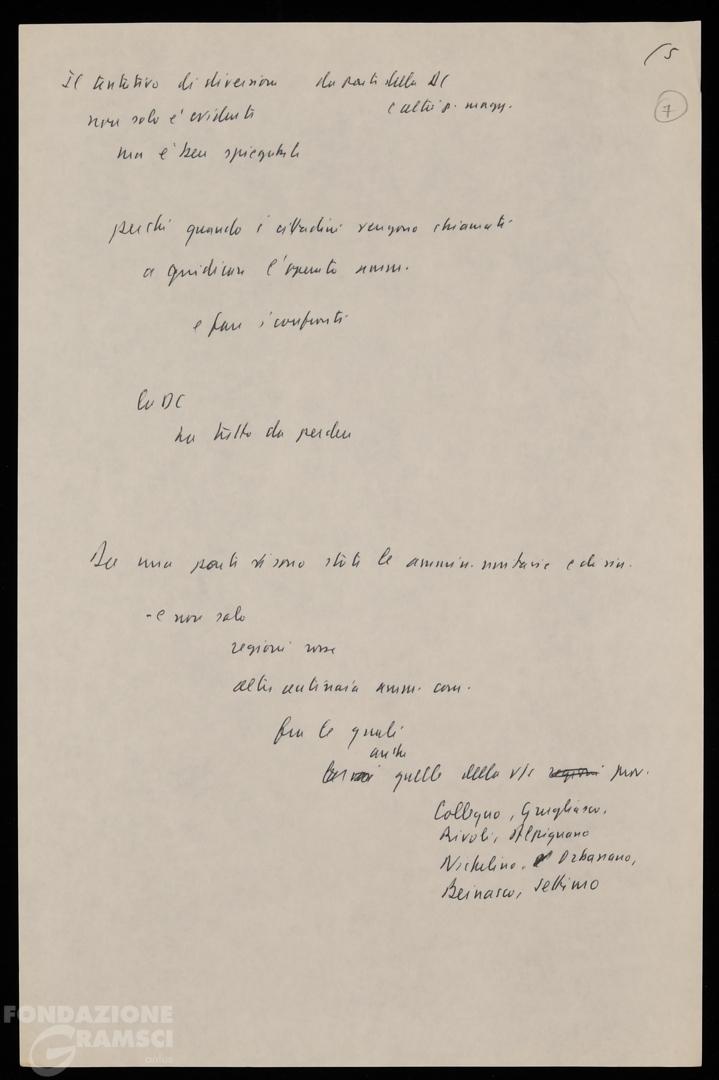 /5
7
Il tentativo di diversione da parte della DC
e altri p. magg.
non solo è evidente
ma è ben spiegabile
perché quando i cittadini vengono chiamati
a giudicare l'operato amm.
e fare i confronti
la DC
ha tutto da perdere
Da una parte vi sono state le ammin. unitarie e di sin.
- e non solo
regioni rosse
altre centinaia amm. com.
fra le quali
anche
quelle della vs regioni prov.
Collegno, Grugliasco,
Rivoli, Alpignano
Nichelino, Orbassano,
Beinasco, Settimo
FONDAZIONE
GRAMSCI
onlus